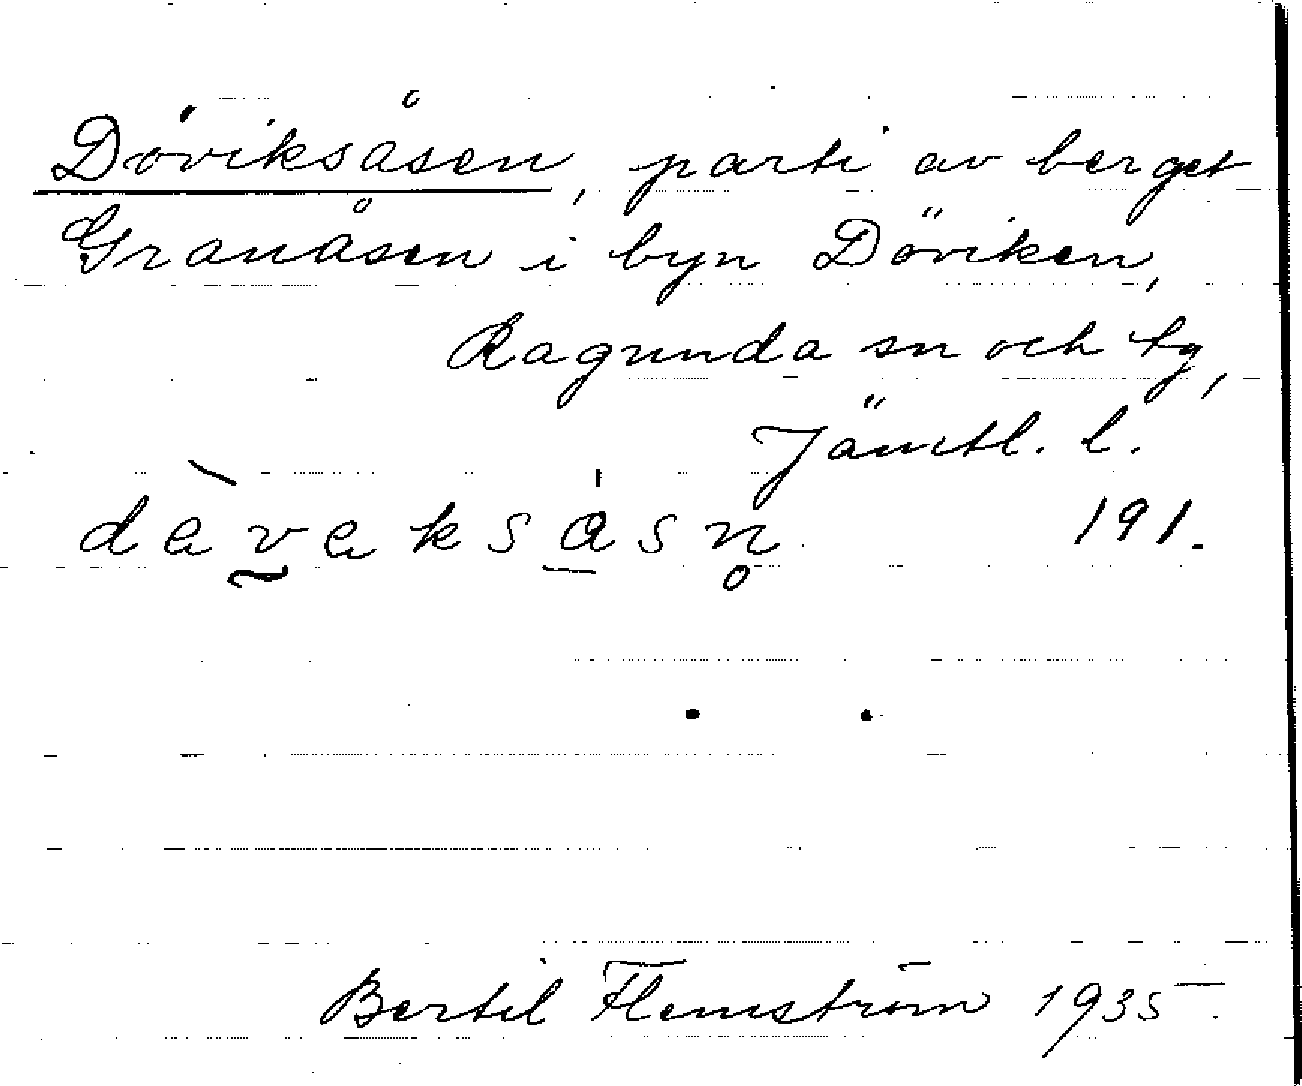 Döviksåsen, parti av berget
Granåsen i byn Döviken,
Ragunda sn och tg,
Jämtl. l.
191.
Bertil Flemström 1935.